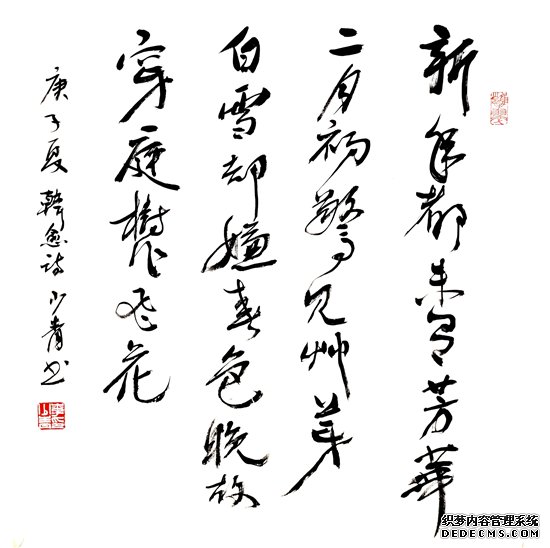 新年都未有芳華
二月初驚见艸芽
白雪却嫌春色晚故
穿庭樹作飞花
庚子夏韓愈诗少青书
织梦内容管理系统
DEDECMS.COM